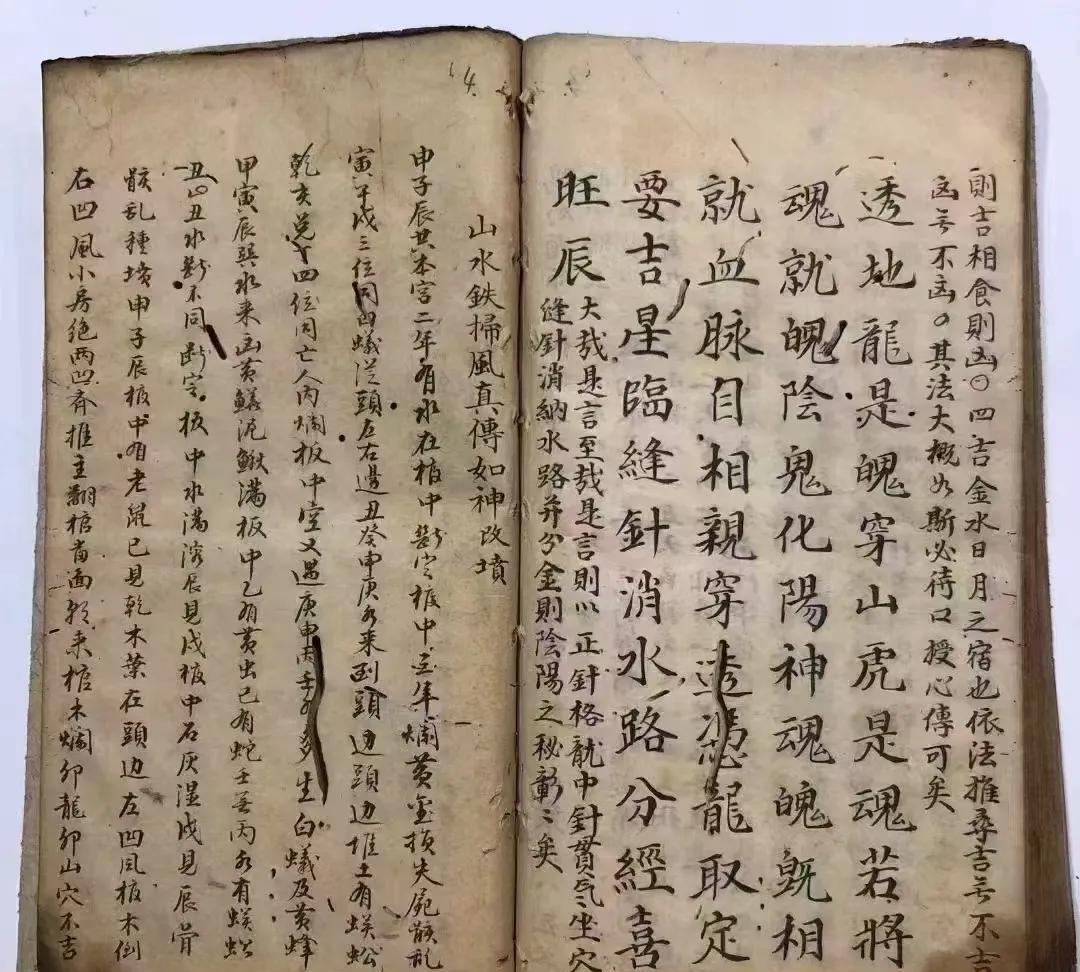 則吉相食則凶〇四吉金水日月之宿也依法推尋吉无不吉
凶无不凶〇其法大概如斯必待口授心傳可矣
透地龍是魄穿山虎是魂若將
魂就魄陰鬼化陽神魂魄既相
就血脉自相親穿透憑龍取定
要吉星臨縫針消水路分經喜
旺辰
大哉是言至哉是言則以正針格龍中針貫气坐穴
縫針消納水路并分金則陰陽之秘彰〻矣
4
山水鉄掃風真傳如神改墳
申子辰共本宮二年有水在棺中断定棺中三年爛黃金損失屍骸乱
寅午戌三位同白蟻從頭左右邊丑癸申庚水来到頭边頭边堆土有蜈蚣
乾亥兑丁四位同亡人内爛板中空又遇庚申丙壬水多生白蟻及黃蜂
甲寅辰巽水来凶黃鱔泥鰍滿板中乙有黃虫巳有蛇壬子丙水有蜈蚣
丑山丑水断不同断定板中水滿濃辰見戌板中石灰湿戌見辰骨
骸乱種墳申子辰棺中有老鼠巳見乾木葉在頭边左凹風板木倒
右凹風小房絶两凹齐推主翻棺背面水来棺木爛卯龍卯山穴不吉